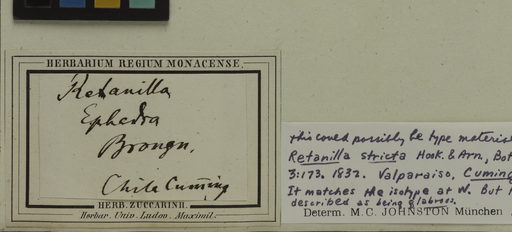 HERBARIUM REGIUM MONACENSE.
Retanilla
Ephedra
Brongn.
Chile Cuming
HERB. ZUCCARINII.
Herbar. Univ. Ludov. Maximil.
this could possibly be type material
Retanilla stricta Hook. & Arn., Bot
3:173. 1832. Valparaiso, Cuming
It matches the isotype at W. But
described as being glabrous.
Determ. M. C. JOHNSTON München